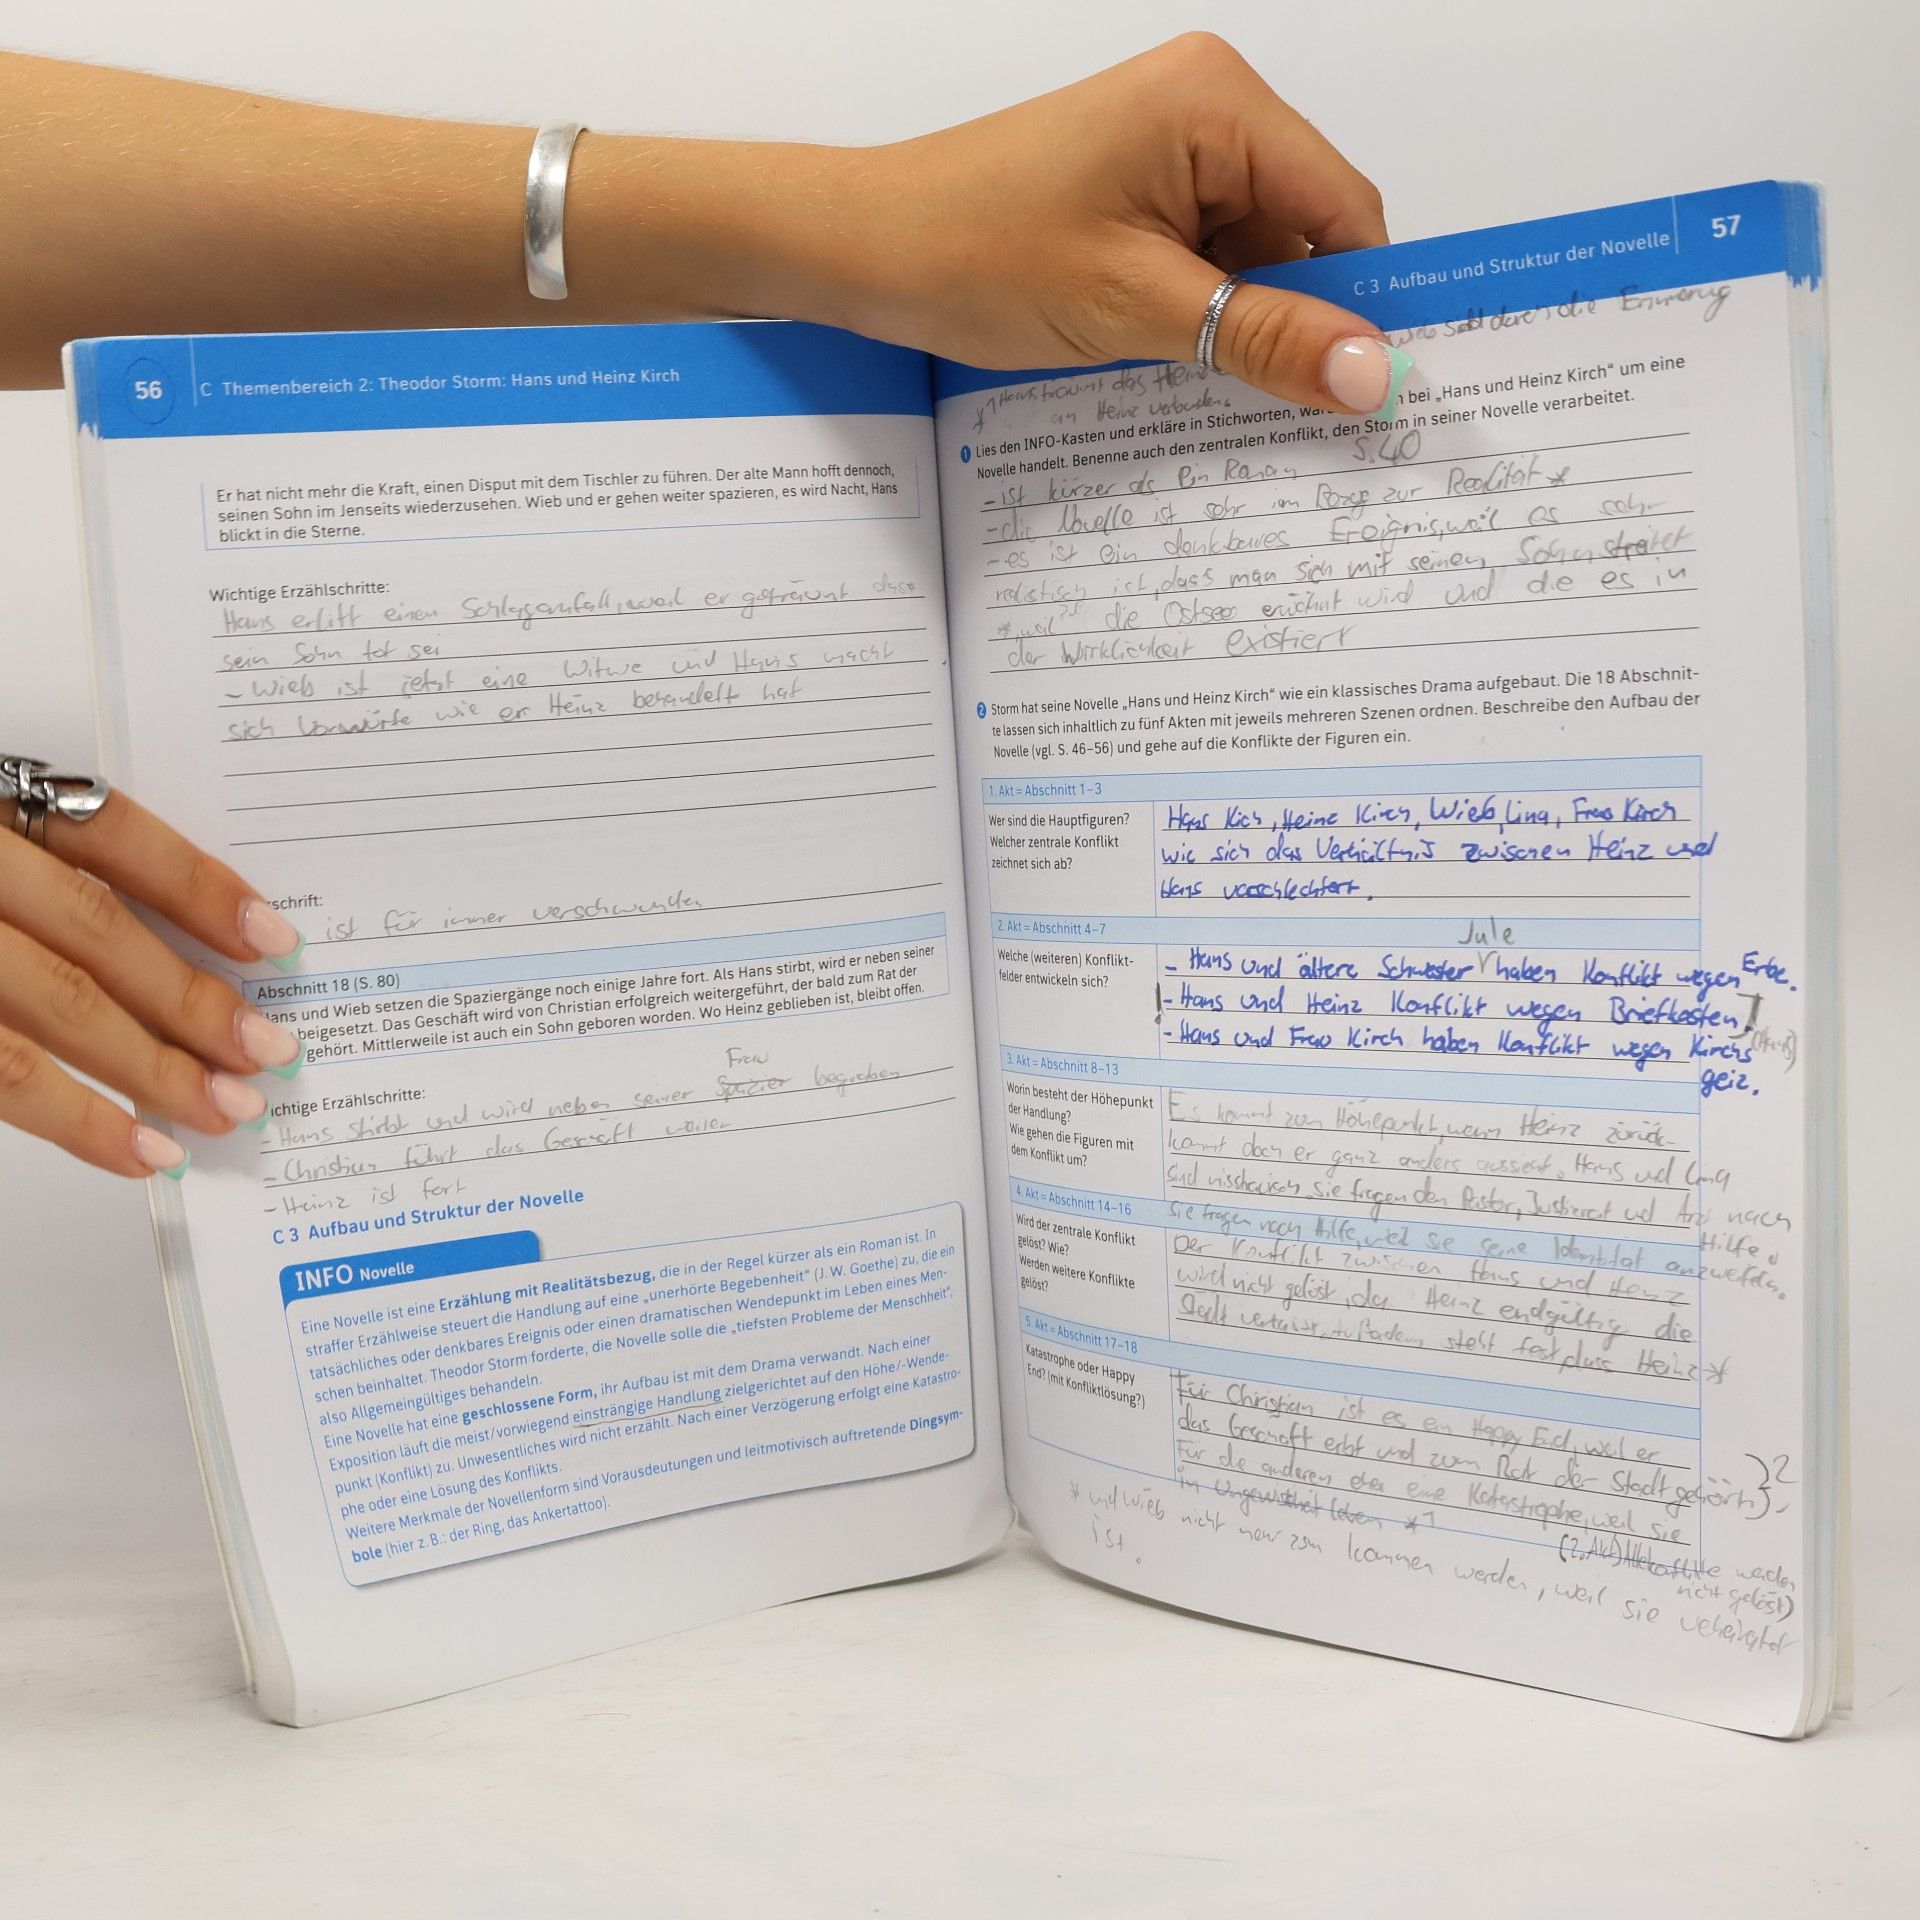 56 C Themenbereich 2: Theodor Storm: Hans und Heinz Kirch
Er hat nicht mehr die Kraft, einen Disput mit dem Tischler zu führen. Der alte Mann hofft dennoch,
seinen Sohn im Jenseits wiederzusehen. Wieb und er gehen weiter spazieren, es wird Nacht, Hans
blickt in die Sterne.
Wichtige Erzählschritte:
Hans erlitt einen Schlaganfall, weil er geträumt dass
sein Sohn tot sei
- Wieb ist jetzt eine Witwe und Hans macht
sich Vorwürfe wie er Heinz behandelt hat
schrift:
ist für immer verschwunden
Abschnitt 18 (S. 80)
Hans und Wieb setzen die Spaziergänge noch einige Jahre fort. Als Hans stirbt, wird er neben seiner
beigesetzt. Das Geschäft wird von Christian erfolgreich weitergeführt, der bald zum Rat der
gehört. Mittlerweile ist auch ein Sohn geboren worden. Wo Heinz geblieben ist, bleibt offen.
ichtige Erzählschritte:
Frau
- Hans stirbt und wird neben seiner begraben
- Christian führt das Geschäft weiter
- Heinz ist fort
C 3 Aufbau und Struktur der Novelle
INFO Novelle
Eine Novelle ist eine Erzählung mit Realitätsbezug, die in der Regel kürzer als ein Roman ist. In
straffer Erzählweise steuert die Handlung auf eine „unerhörte Begebenheit“ (J. W. Goethe) zu, die ein
tatsächliches oder denkbares Ereignis oder einen dramatischen Wendepunkt im Leben eines Men-
schen beinhaltet. Theodor Storm forderte, die Novelle solle die „tiefsten Probleme der Menschheit“,
also Allgemeingültiges behandeln.
Eine Novelle hat eine geschlossene Form, ihr Aufbau ist mit dem Drama verwandt. Nach einer
Exposition läuft die meist/vorwiegend einsträngige Handlung zielgerichtet auf den Höhe-/Wende-
punkt (Konflikt) zu. Unwesentliches wird nicht erzählt. Nach einer Verzögerung erfolgt eine Katastro-
phe oder eine Lösung des Konflikts.
Weitere Merkmale der Novellenform sind Vorausdeutungen und leitmotivisch auftretende Dingsym-
bole (hier z. B.: der Ring, das Ankertattoo).
C 3 Aufbau und Struktur der Novelle 57
durch die Erinnerung
Hans träumt das Heinz
an Heinz verbunden
1 Lies den INFO-Kasten und erkläre in Stichworten, bei „Hans und Heinz Kirch“ um eine
Novelle handelt. Benenne auch den zentralen Konflikt, den Storm in seiner Novelle verarbeitet.
S. 40
- ist kürzer als ein Roman
- die Novelle ist sehr im Bezug zur Realität *
- es ist ein denkbares Ereignis, weil es sehr
realistisch ist, dass man sich mit seinem Sohn streitet
*, weil die Ostsee erwähnt wird und die es in
der Wirklichkeit existiert
2 Storm hat seine Novelle „Hans und Heinz Kirch“ wie ein klassisches Drama aufgebaut. Die 18 Abschnit-
te lassen sich inhaltlich zu fünf Akten mit jeweils mehreren Szenen ordnen. Beschreibe den Aufbau der
Novelle (vgl. S. 46–56) und gehe auf die Konflikte der Figuren ein.
1. Akt = Abschnitt 1–3
Wer sind die Hauptfiguren?
Welcher zentrale Konflikt
zeichnet sich ab?
Hans Kich, Heinz Kirch, Wieb, Lina, Frau Kirch
wie sich das Verhältnis zwischen Heinz und
Hans verschlechtert.
2. Akt = Abschnitt 4–7
Welche (weiteren) Konflikt-
felder entwickeln sich?
Jule
- Hans und ältere Schwester haben Konflikt wegen Erbe.
- Hans und Heinz Konflikt wegen Briefkosten
- Hans und Frau Kirch haben Konflikt wegen Kirchs
(Hans)
geiz.
3. Akt = Abschnitt 8–13
Worin besteht der Höhepunkt
der Handlung?
Wie gehen die Figuren mit
dem Konflikt um?
Es kommt zum Höhepunkt, wenn Heinz zurück-
kommt doch er ganz anders aussieht. Hans und Lina
sind misstrauisch, sie fragen den Pastor, Justizrat und Arzt nach
Hilfe.
4. Akt = Abschnitt 14–16
Sie fragen nach Hilfe, weil sie seine Identität anzweifeln.
Wird der zentrale Konflikt
gelöst? Wie?
Werden weitere Konflikte
gelöst?
Der Konflikt zwischen Hans und Heinz
wird nicht gelöst, da Heinz endgültig die
Stadt verlässt. Außerdem steht fest, dass Heinz *
5. Akt = Abschnitt 17–18
Katastrophe oder Happy
End? (mit Konfliktlösung?)
Für Christian ist es ein Happy End, weil er
das Geschäft erbt und zum Rat der Stadt gehört
Für die anderen eher eine Katastrophe, weil sie
in Ungewissheit leben *
(2. Akt) Alle Konflikte werden
nicht gelöst)
* und Wieb nicht mehr zsm kommen werden, weil sie verheiratet
ist.